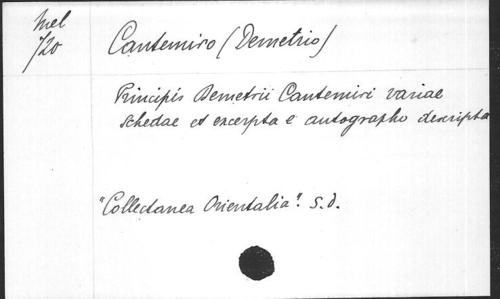 Mel
720
Cantemiro (Demetrio)
Principis Demetrii Cantemiri variae
schedae et excerpta e autographo descripta
"Collectanea Orientalia". s.d.